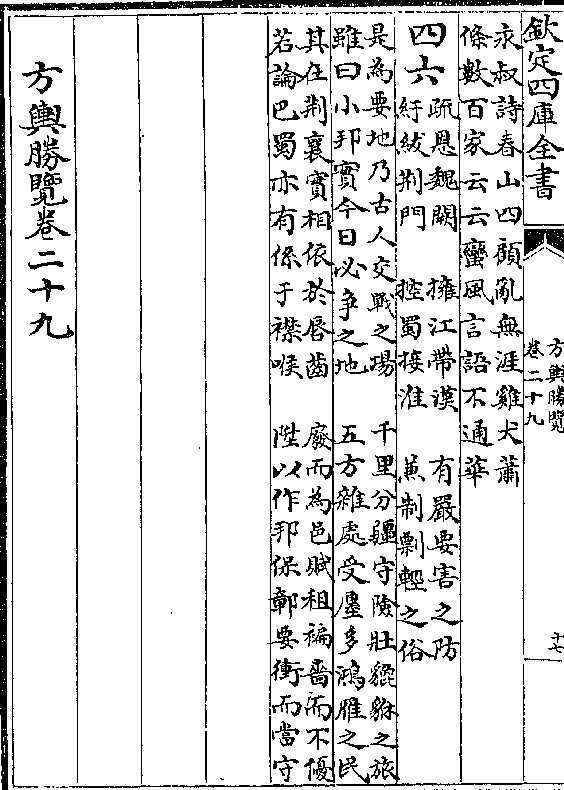 欽定四庫全書
方輿勝覽
卷二十九
十七
永叔詩春山四顧亂無涯雞犬蕭
條數百家云云蠻風言語不通華
四六
疏恩魏闕　擁江帶漢　有嚴要害之防
紆紱荆門　控蜀接淮　兼制剽輕之俗
是為要地乃古人交戰之場　千里分疆守險壯貔貅之旅
雖曰小邦實今日必争之地　五方雜處受廛多鴻雁之民
其在荆襄實相依於唇齒　廢而為邑賦租褊嗇而不優
若論巴蜀亦有係于襟喉　陞以作邦保鄣要衝而當守
方輿勝覽卷二十九